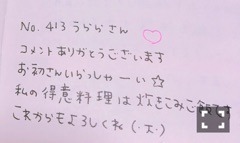 No. 413 うららさん ♡
コメントありがとうございます
お初さんいらっしゃーい☆
私の得意料理は炊きこみご飯です
これからもよろしくね (・x・)